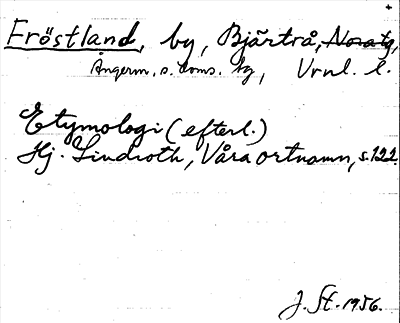 Fröstland, by, Bjärtrå, Nora tg,
Ångerm. s. doms. tg, Vrnl. l.
Etymologi (efterl.)
Hj. Lindroth, Våra ortnamn, s. 122.
J. St. 1956.